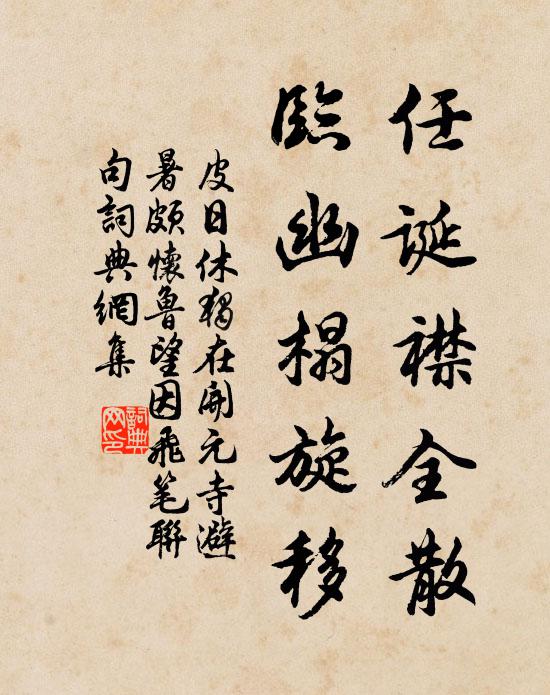 任誕襟全散
臨幽榻旋移
皮日休獨在開元寺避
暑頗懷魯望因飛筆聯
句詞典網集
詞典
网印